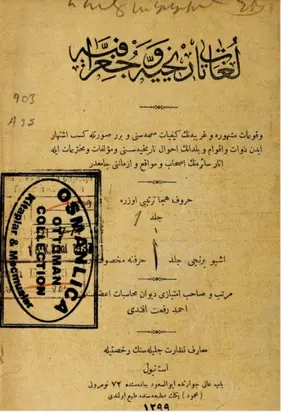 903
A95
لغات تاریخیه و جغرافیه
وقوعات مشهوره و غریبه‌نك كیفیات مهمه‌سنی و برر صورتله كسب اشتهار
ایدن ذوات و اقوام و بلدانك احوال تاریخیه‌سنی و مؤلفات و مخترعات ایله
آثار سائره‌نك اصحاب و مواقع و ازماننی جامعدر
حروف هجا ترتیبی اوزره
جلد
۱
اشبو برنجی جلد ا حرفنه مخصوص
OSMANLICA
OTTOMAN
COLLECTION
Kitaplar &
مرتب و صاحب امتیازی دیوان محاسبات اعضا
احمد رفعت افندی
معارف نظارت جلیله‌سنك رخصتیله
استانبول
باب عالی جوارنده ابوالسعود جاده‌سنده ۷۲ نومرولی
(محمود) بك مطبعه‌سنده طبع اولندی
۱۲۹۹